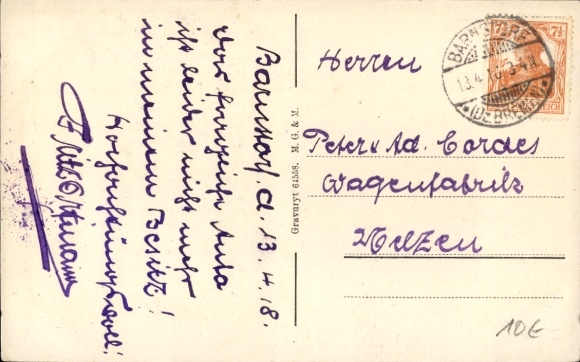 Barnstorf, d. 13.4.18.
Das fragliche Auto
ist leider nicht mehr
in meinem Besitz!
Hochachtungsvoll!
Herren
Peter & Ad. Cordes
Wagenfabrik
Uelzen
Gravuryt 64558. M. G. & M.
BARNSTORF
13.4.18. 5-6N
(Bz BREMEN)
7½
7½
REICH
10€